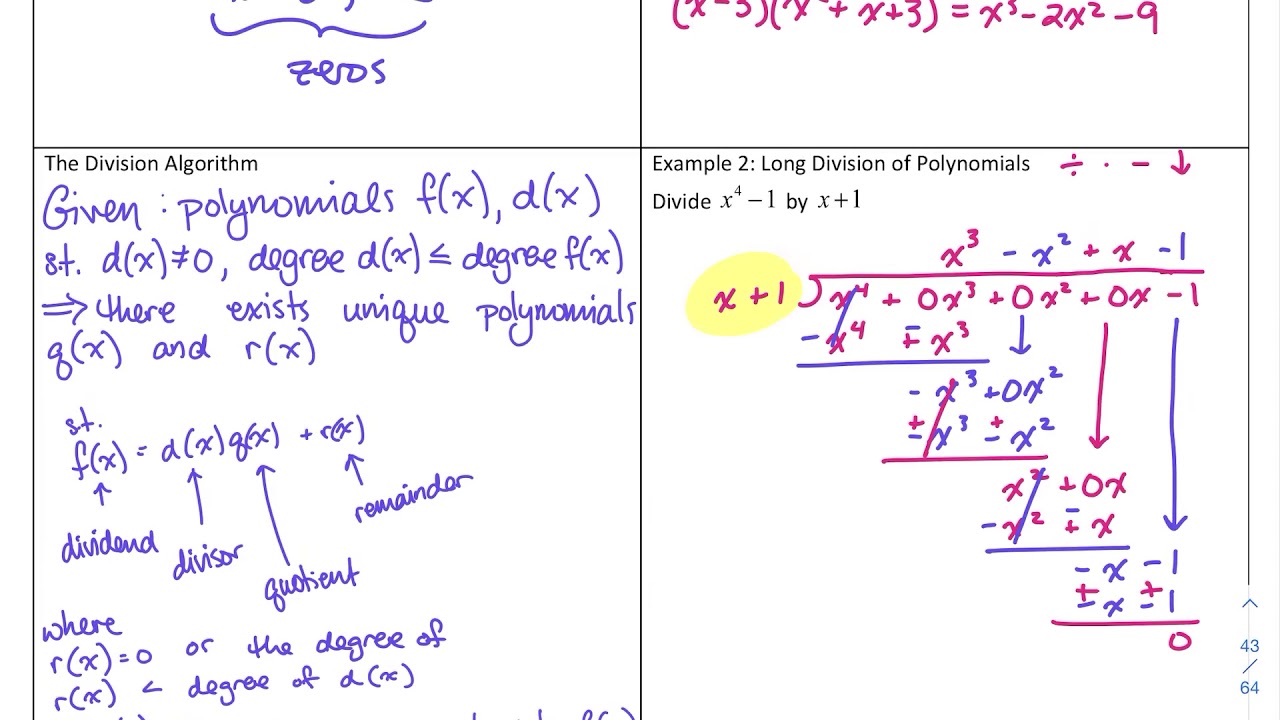 zeros
(x-3)(x²+ x+3) = x³-2x²-9
The Division Algorithm
Given : polynomials f(x), d(x)
s.t. d(x)≠0, degree d(x) ≤ degree f(x)
⇒ there exists unique polynomials
q(x) and r(x)
s.t.
f(x) = d(x)q(x) + r(x)
↑ ↑ ↑ ↑
remainder
dividend divisor
quotient
where
r(x)=0 or the degree of
r(x) < degree of d(x)
Example 2: Long Division of Polynomials ÷ · − ↓
Divide x⁴ −1 by x+1
x³ - x² + x -1
x + 1 ) x⁴ + 0x³ + 0x² + 0x - 1
- x⁴ ∓ x³ ↓
- x³ + 0x²
± x³ ± x²
x² + 0x
- x² ∓ x
- x - 1
± x ± 1
0
43
/
64